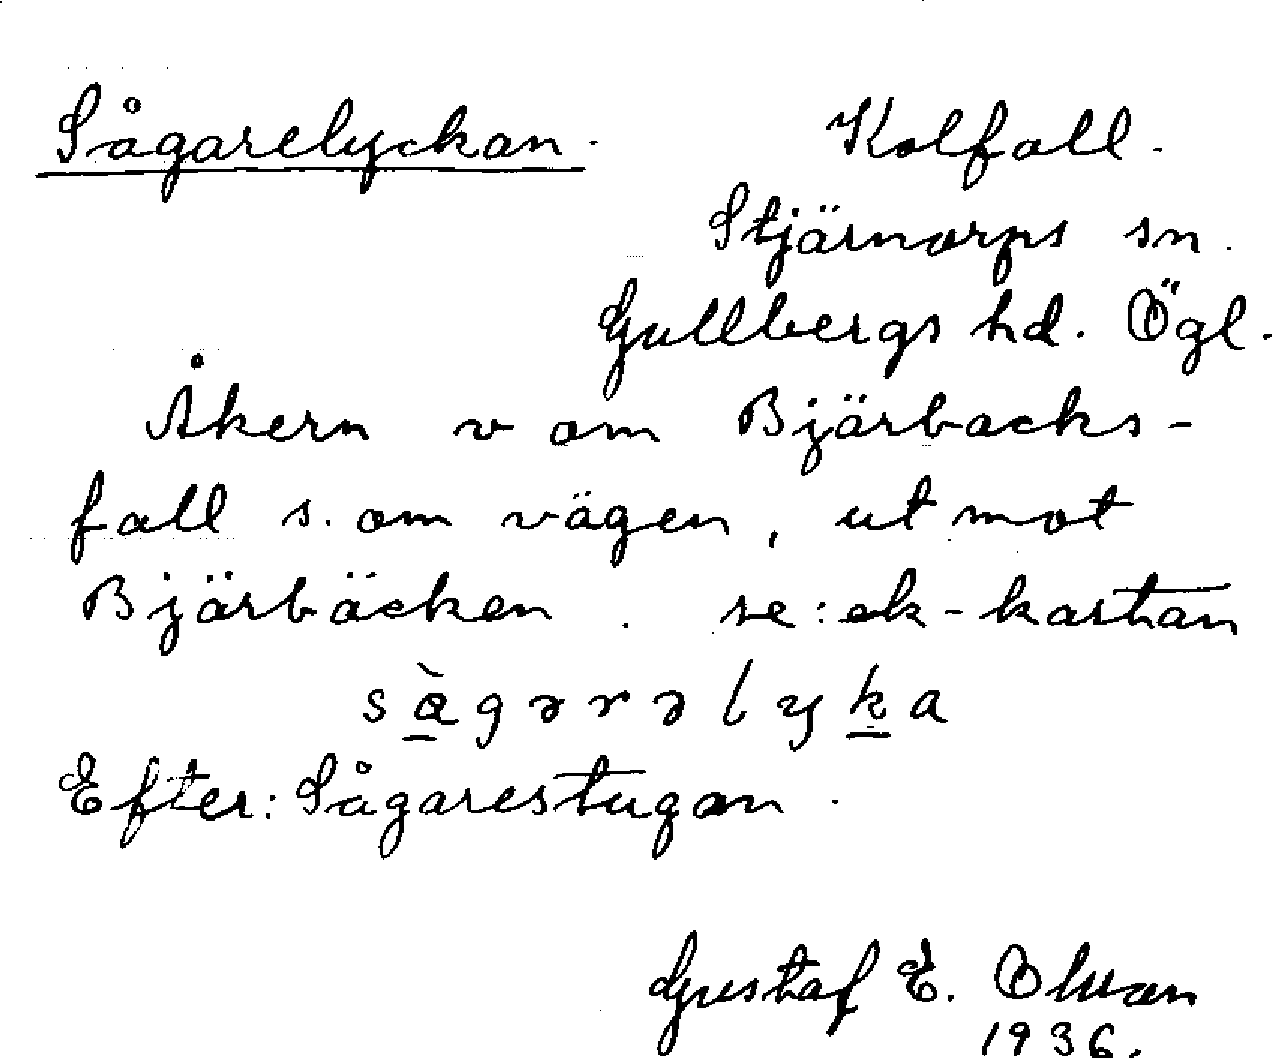 Sågarelyckan.
Kolfall.
Stjärnorps sn.
Gullbergs hd. Ögl.
Åkern v om Bjärbacks-
fall s. om vägen, ut mot
Bjärbäcken. se: ek-kartan
sàgərəlyka
Efter: Sågarestugan.
Gustaf E. Olsson
1936.